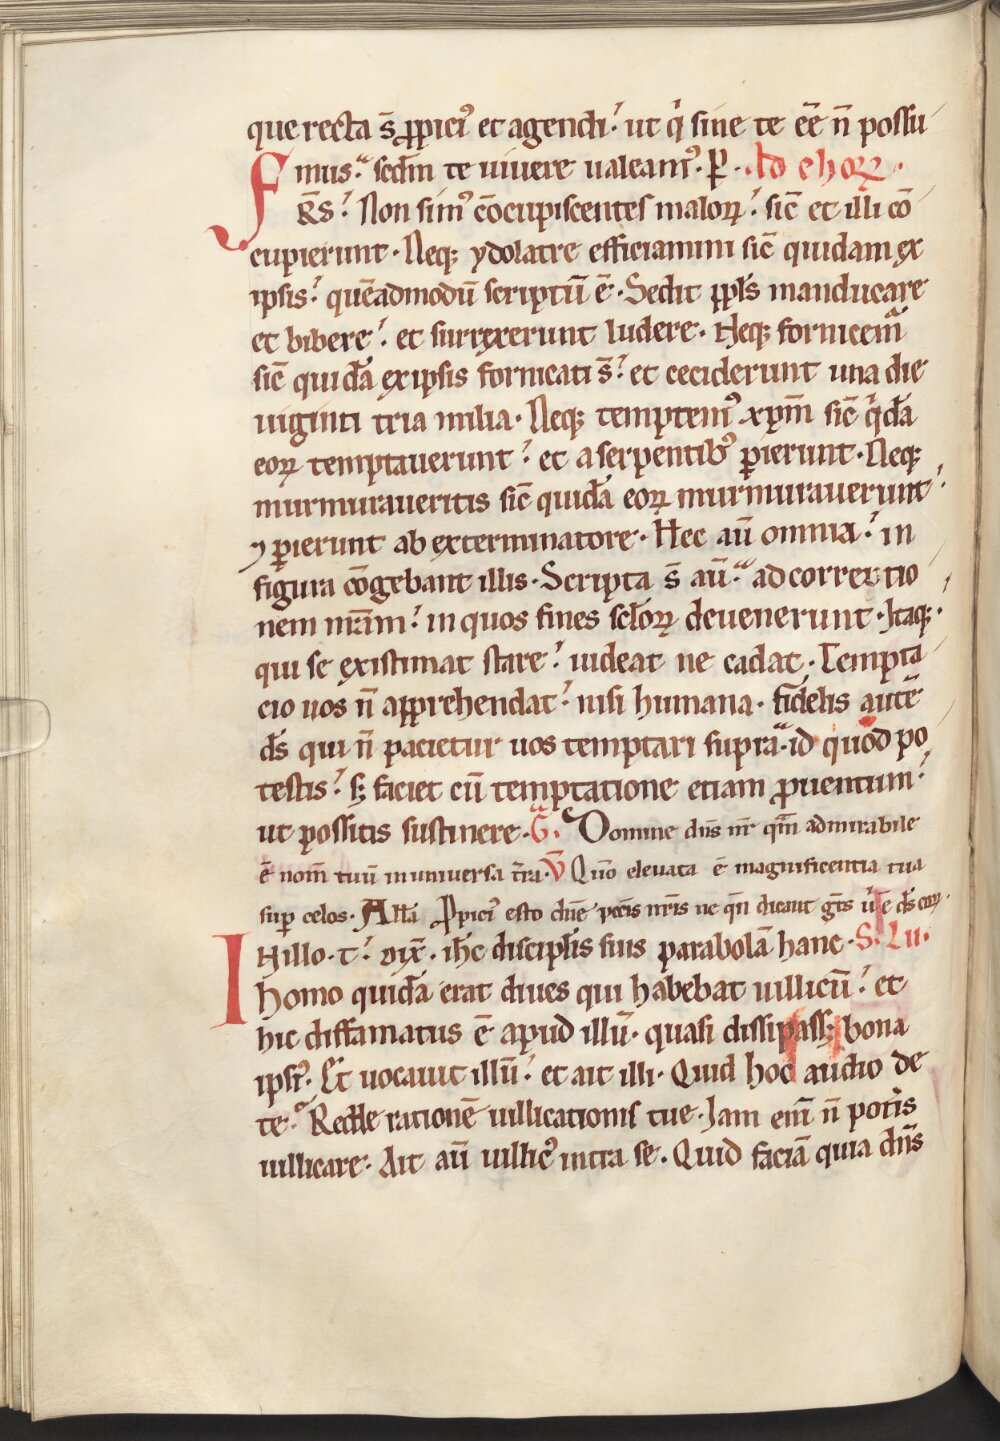 que recta s̄ p̱picı᷒ et agendi. ut q̇ sine te eē n̄ possu
mus. scd̄m te uiuere ualeam᷒. P. Ad chorꝝ.
FR̄S. Non sim᷒ cōcupiscentes malorꝝ. sic̄ et illi cō
cupierunt. Neq; ydolatre efficiamini sic̄ quidam ex
ipsis. quēadmodū scriptū ē. Sedit ppl̄s manducare
et bibere. et surrexerunt ludere. Neq; fornicem̄
sic̄ quidā ex ipsis fornicati s̄. et ceciderunt una die
uiginti tria milia. Neq; temptem᷒ xpm̄ sic̄ q̇dā
eorꝝ temptauerunt. et a serpentib᷒ ꝑierunt. Neq;
murmuraueritis sic̄ quidā eorꝝ murmurauerunt
⁊ ꝑierunt ab exterminatore. Hec aū omnia. in
figura cōgebant illis. Scripta s̄ aū. ad correctio
nem nr̄am. in quos fines scl̄orꝝ deuenerunt. Itaq;
qui se existimat stare. uideat ne cadat. Tempta
cio uos n̄ apprehendat. nisi humana. fidelis autē
d̄s qui n̄ pacietur uos temptari supra. id quod po
testis. s; faciet cū temptatione etiam ꝓuentum.
ut possitis sustinere. G̅. Domine dn̄s nr̄ qm̄ admirabile
ē nom̄ tuū in uniuersa t̄ra. V̄ Qn̄o eleuata ē magnificentia tua
suꝑ celos. All̄a Ꝓpici᷒ esto dn̄e pecc̄is nr̄is ne q̄n dicant gn̄s u̇ ē d̄s eorꝝ.
IN illo. t. dix̄. ihc̄ discipl̄is suis parabolā hanc. S. Lu.
Homo quidā erat diues qui habebat uillicū. et
hic diffamatus ē apud illū. quasi dissipass; bona
ipsi᷒. Et uocauit illū. et ait illi. Quid hoc audio de
te. Redde rationē uillicationis tue. Jam eni̅ n̄ potis
uillicare. Ait aū uillic᷒ intra se. Quid faciā quia dn̄s